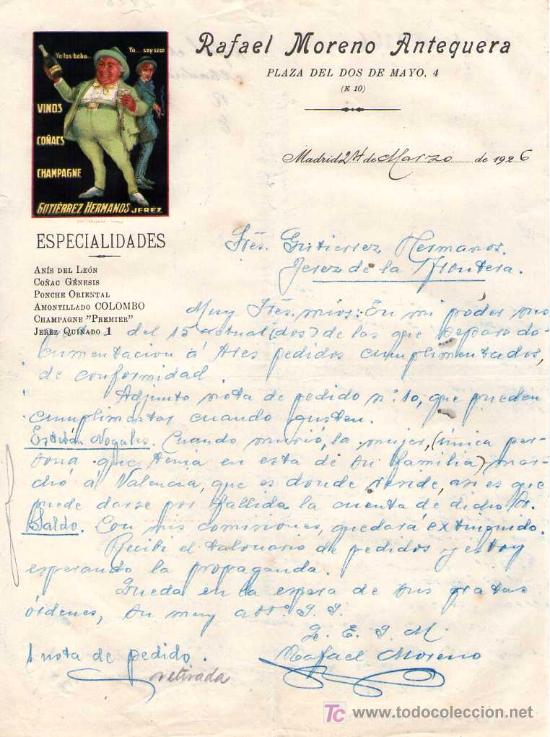 Rafael Moreno Antequera
PLAZA DEL DOS DE MAYO, 4
(E 10)
Madrid 24 de Marzo de 1926
Yo los bebo...
Yo... soy seco
VINOS
COÑACS
CHAMPAGNE
GUTIÉRREZ HERMANOS JEREZ
ESPECIALIDADES
ANÍS DEL LEÓN
COÑAC GÉNESIS
PONCHE ORIENTAL
AMONTILLADO COLOMBO
CHAMPAGNE "PREMIER"
JEREZ QUINADO 1
Sres. Gutierrez Hermanos.
Jerez de la Frontera.
Muy Sres. mios: En mi poder sus
del 15 actual (dos) de las que separo do-
cumentacion á tres pedidos cumplimentados,
de conformidad.
Adjunto nota de pedido nº 10, que pueden
cumplimentar cuando gusten.
Esteban Nogales. Cuando murió, la mujer, (única per-
sona que tenia en esta de su familia) mar-
chó á Valencia, que es donde reside, asi es que
puede darse por fallida la cuenta de dicho Sr.
Saldo. Con mis comisiones, quedará extinguido.
Recibi el talonario de pedidos y estoy
esperando la propaganda.
Queda en la espera de sus gratas
órdenes, su muy att. S. S.
q. E. S. M.
Rafael Moreno
1 nota de pedido.
retirada
TC www.todocoleccion.net